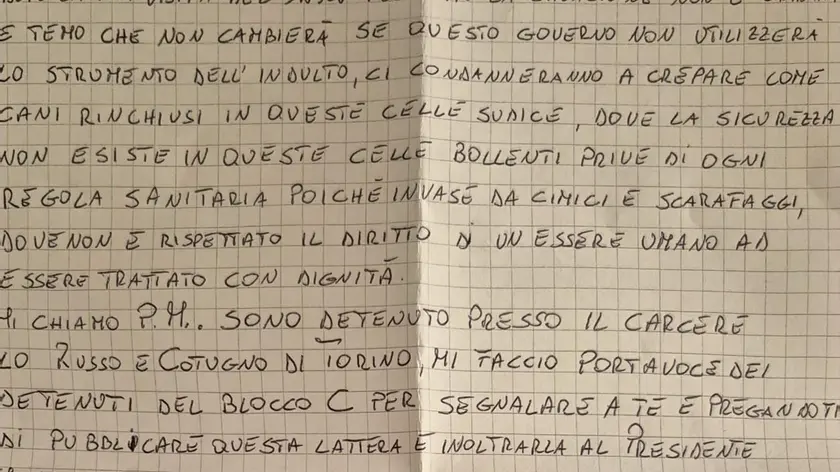 E TEMO CHE NON CAMBIERÀ SE QUESTO GOVERNO NON UTILIZZERÀ
LO STRUMENTO DELL'INDULTO, CI CONDANNERANNO A CREPARE COME
CANI RINCHIUSI IN QUESTE CELLE SUDICE, DOVE LA SICUREZZA
NON ESISTE IN QUESTE CELLE BOLLENTI PRIVE DI OGNI
REGOLA SANITARIA POICHÉ INVASE DA CIMICI E SCARAFAGGI,
DOVE NON È RISPETTATO IL DIRITTO DI UN ESSERE UMANO AD
ESSERE TRATTATO CON DIGNITÀ.
MI CHIAMO P.M.. SONO DETENUTO PRESSO IL CARCERE
LO RUSSO E COTUGNO DI TORINO, MI FACCIO PORTAVOCE DEI
DETENUTI DEL BLOCCO C PER SEGNALARE A TE E PREGANDOTI
DI PUBBLICARE QUESTA LATTERA E INOLTRARLA AL PRESIDENTE